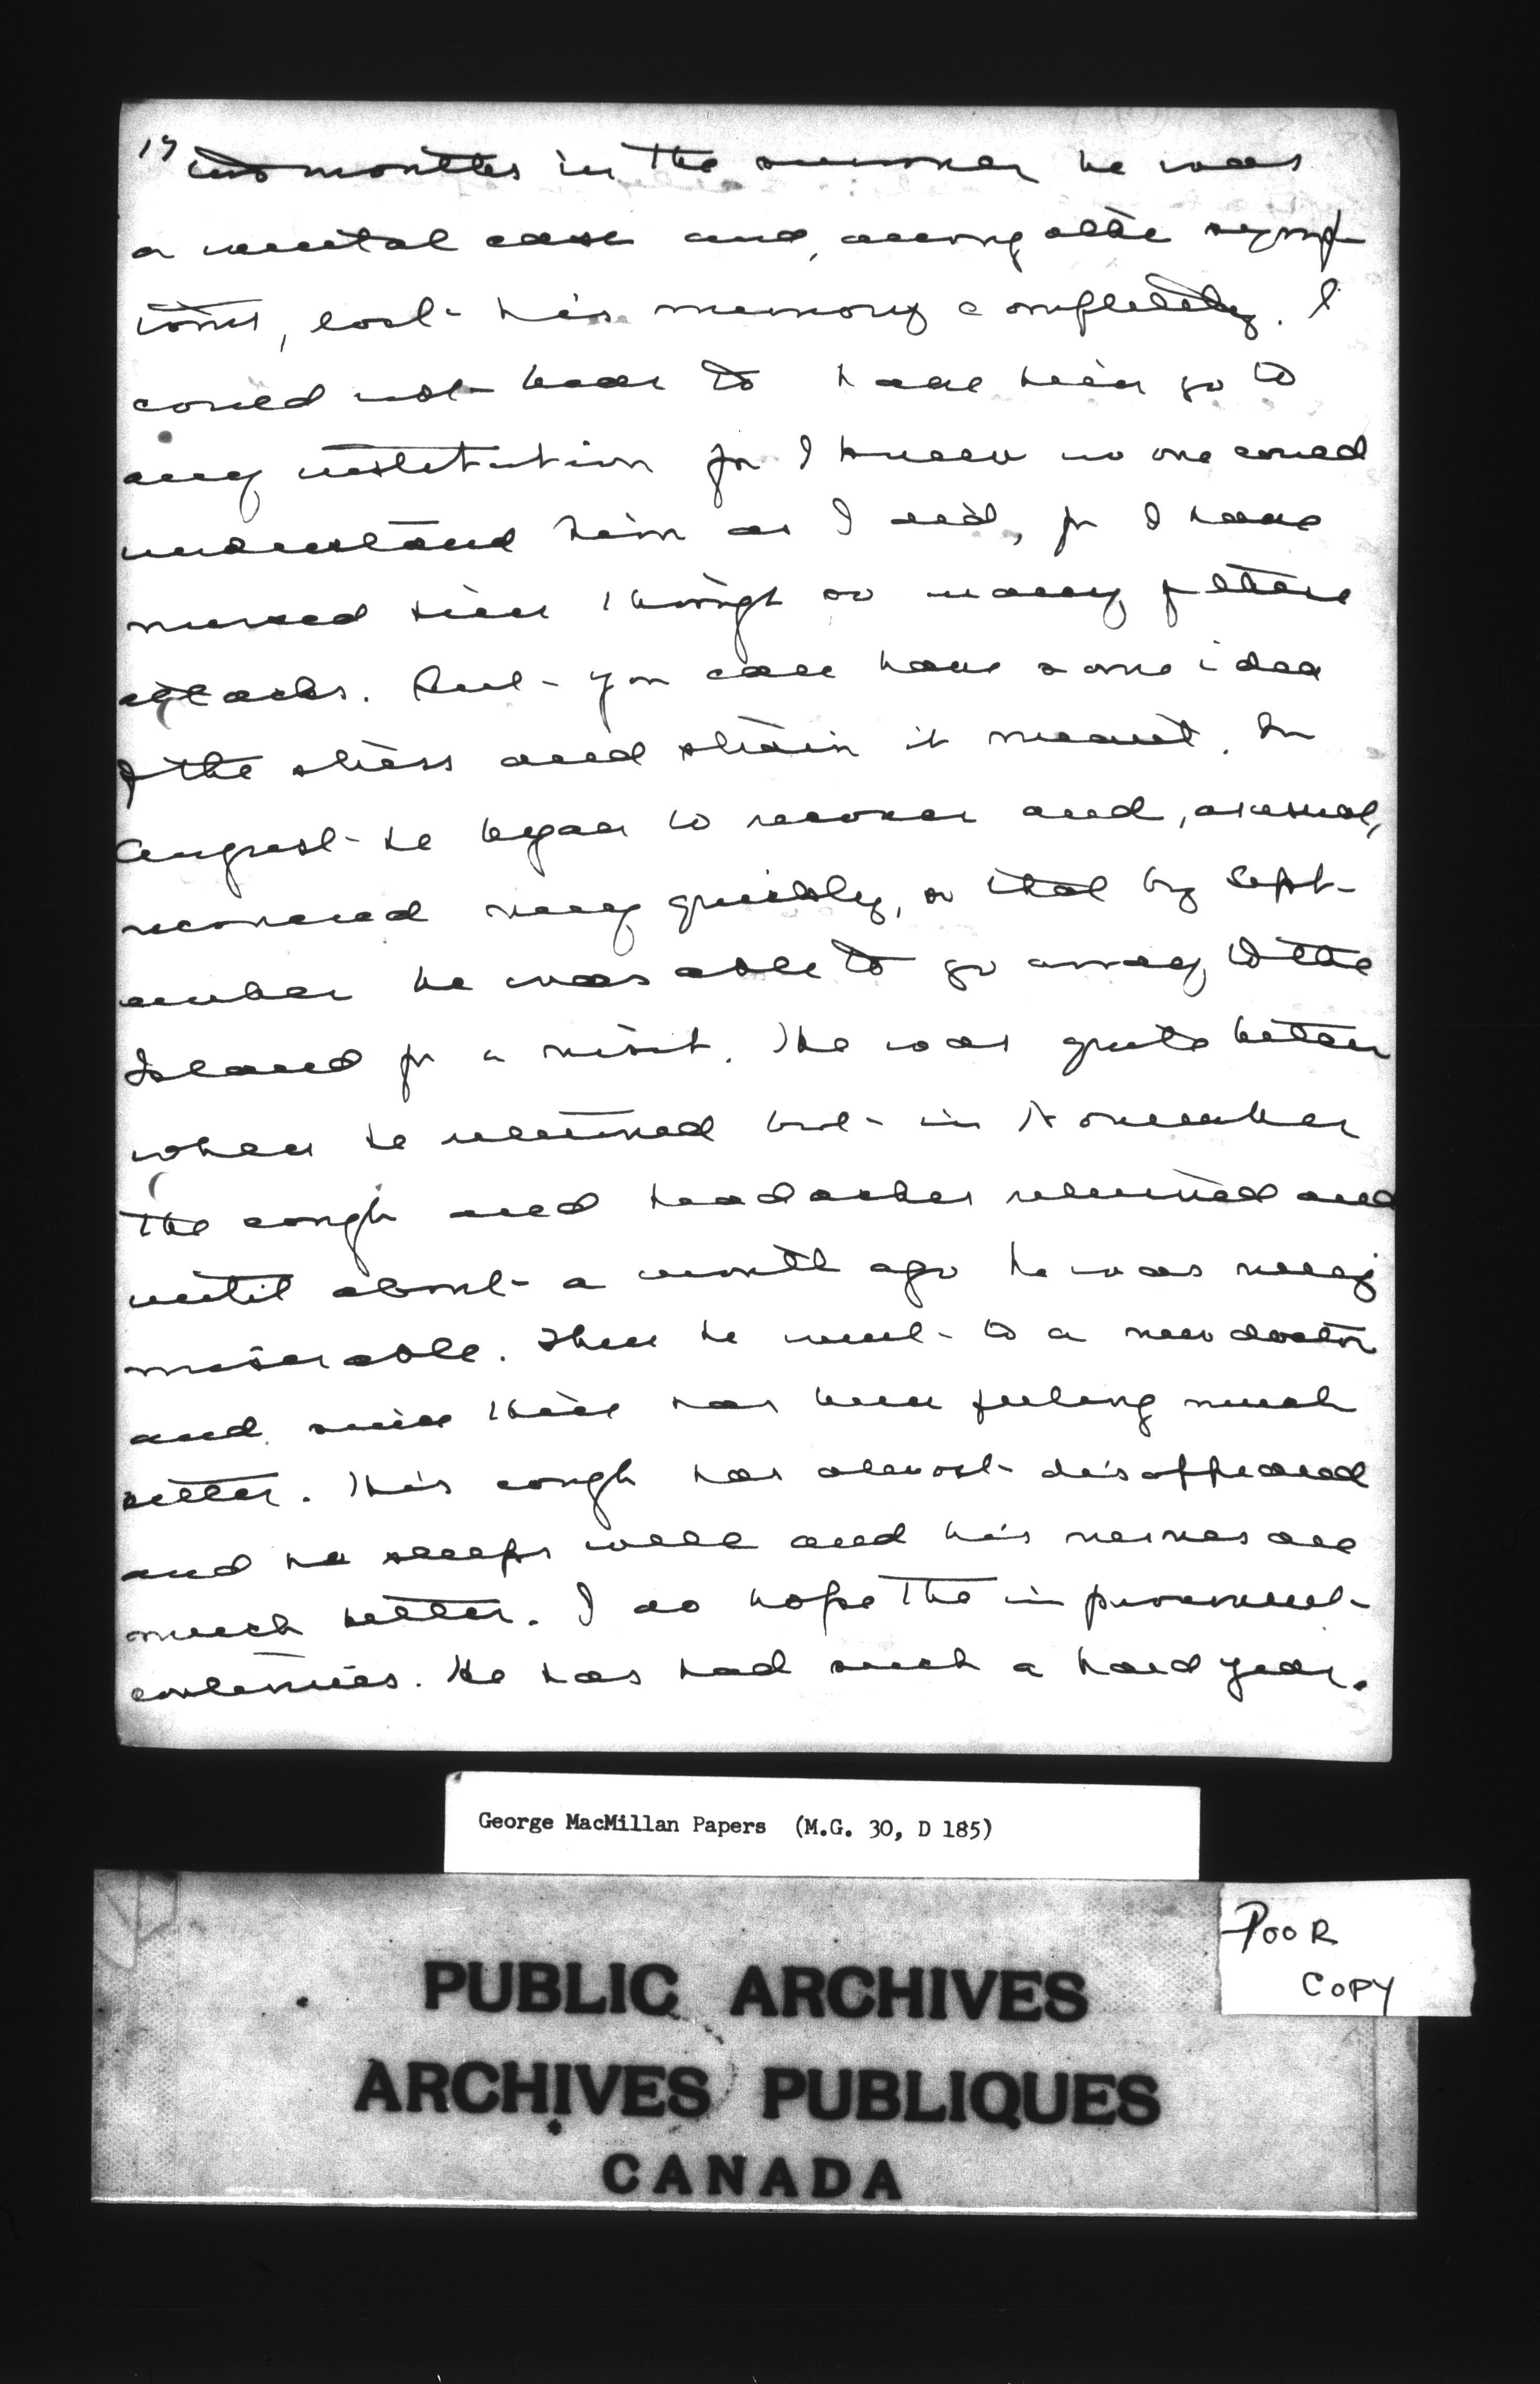 17 two months in the summer he was
a mental case and, among other symp
toms, lost his memory completely. I
could not bear to have him go to
any institution for I knew no one could
understand him as I did, for I have
nursed him through so many of these
attacks. But you can have some idea
of the stress and strain it meant. In
August he began to recover and, as usual,
recovered very quickly, so that by Sept-
ember he was able to go away to the
Island for a visit. He was quite better
when he returned but in November
the cough and headaches returned and
until about a month ago he was very
miserable. Then he went to a new doctor
and since then has been feeling much
better. His cough has almost disappeared
and he sleeps well and his nerves are
much better. I do hope the improvement
continues. He has had such a hard year.
George MacMillan Papers (M.G. 30, D 185)
POOR
COPY
PUBLIC ARCHIVES
ARCHIVES PUBLIQUES
CANADA